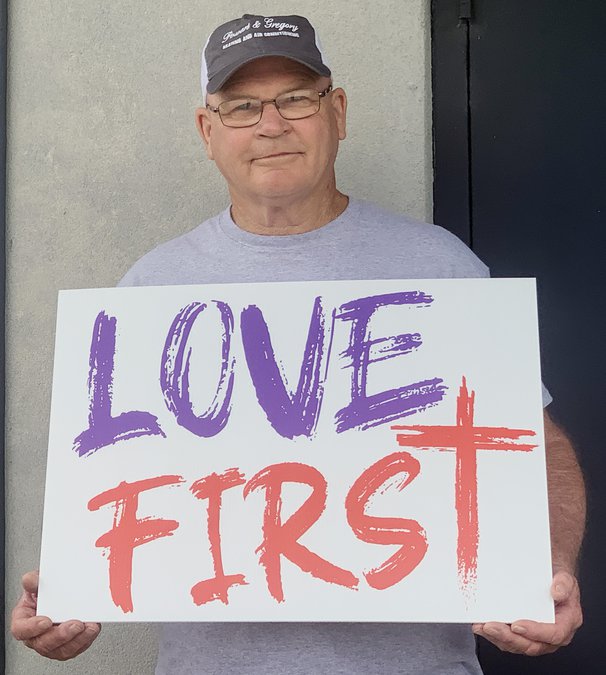 Stewart & Gregory
HEATING AND AIR CONDITIONING
LOVE
FIRST